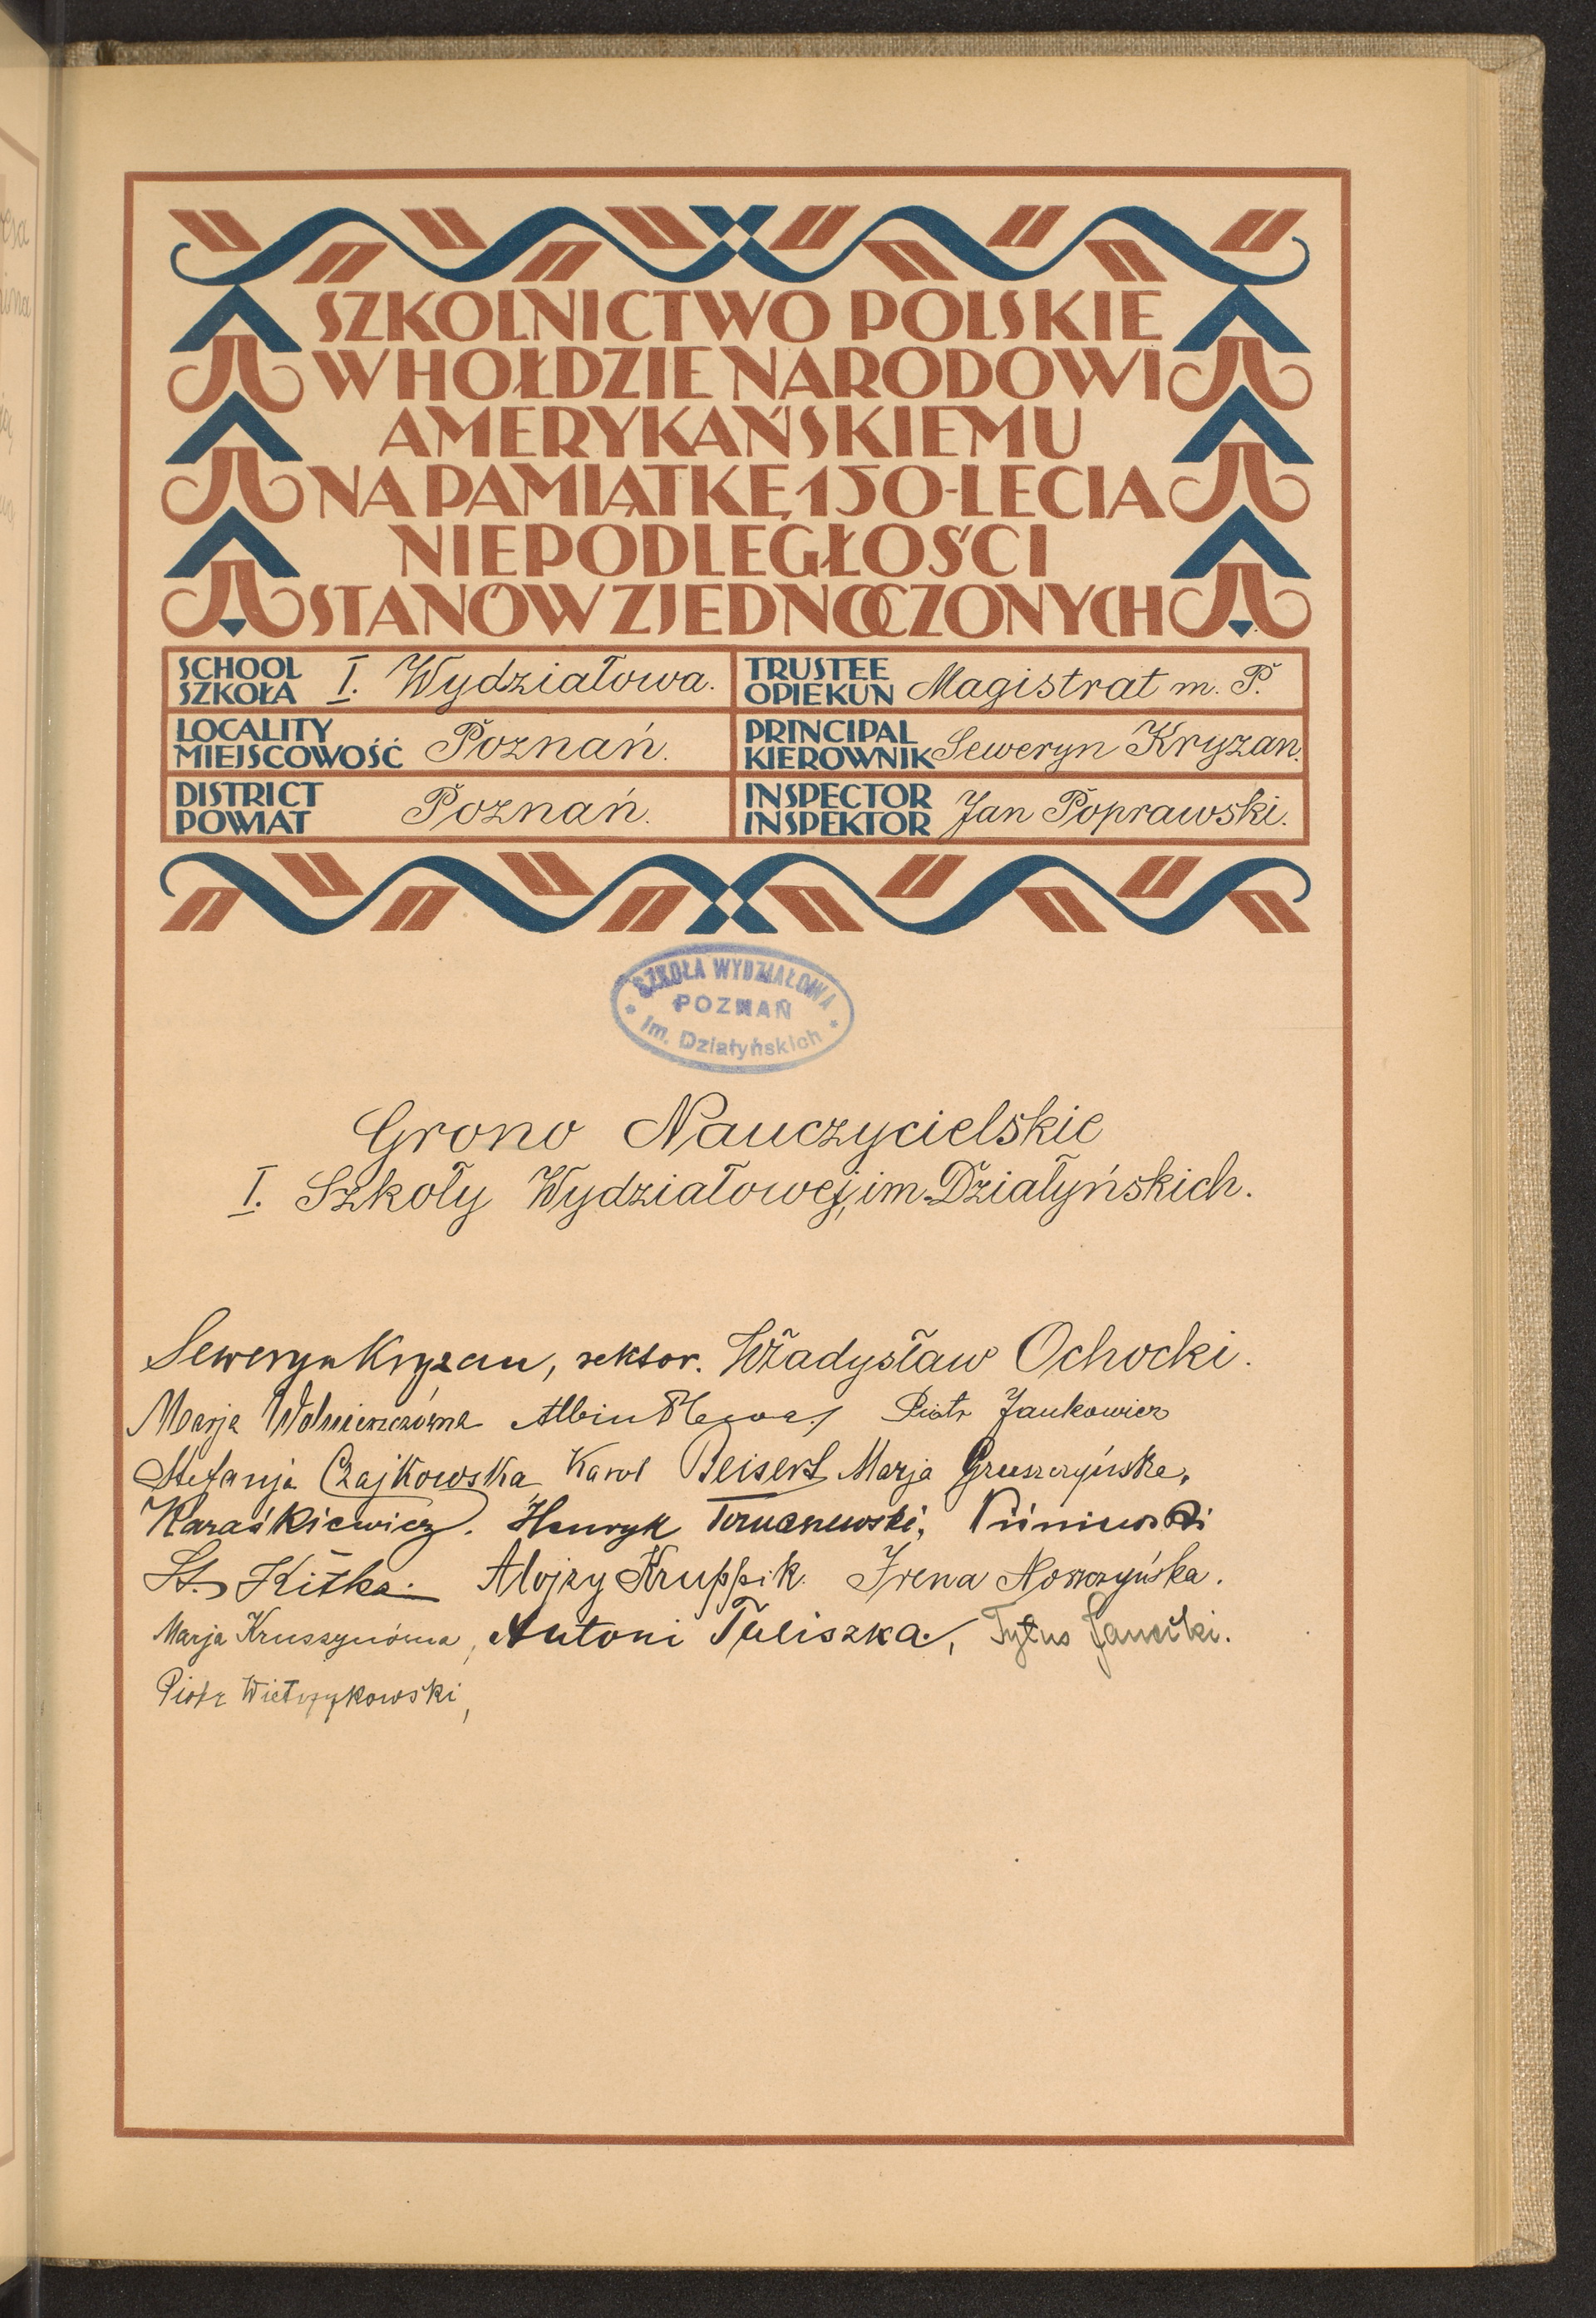 SZKOLNICTWO POLSKIE
W HOŁDZIE NARODOWI
AMERYKAŃSKIEMU
NA PAMIĄTKĘ 150-LECIA
NIEPODLEGŁOŚCI
STANÓW ZJEDNOCZONYCH
SCHOOL
SZKOŁA I. Wydziałowa.
TRUSTEE
OPIEKUN Magistrat m. P.
LOCALITY
MIEJSCOWOŚĆ Poznań.
PRINCIPAL
KIEROWNIK Seweryn Kryzan.
DISTRICT
POWIAT Poznań.
INSPECTOR
INSPEKTOR Jan Poprawski.
SZKOŁA WYDZIAŁOWA
POZNAŃ
im. Działyńskich
Grono Nauczycielskie
I. Szkoły Wydziałowej, im. Działyńskich.
Seweryn Kryzan, rektor. Władysław Ochocki.
Marja Albin Piotr Jankowicz
Stefanja Czajkowska Karol Beisert Marja Gruszczyńska,
Karaśkiewicz. Henryk Tomanewski, Piśniewski
St. Kitka. Alojzy Kruppik. Irena Nowczyńska.
Marja Kruszynówna, Antoni Tuliszka, Tytus Janicki.
Piotr Wietrzykowski,